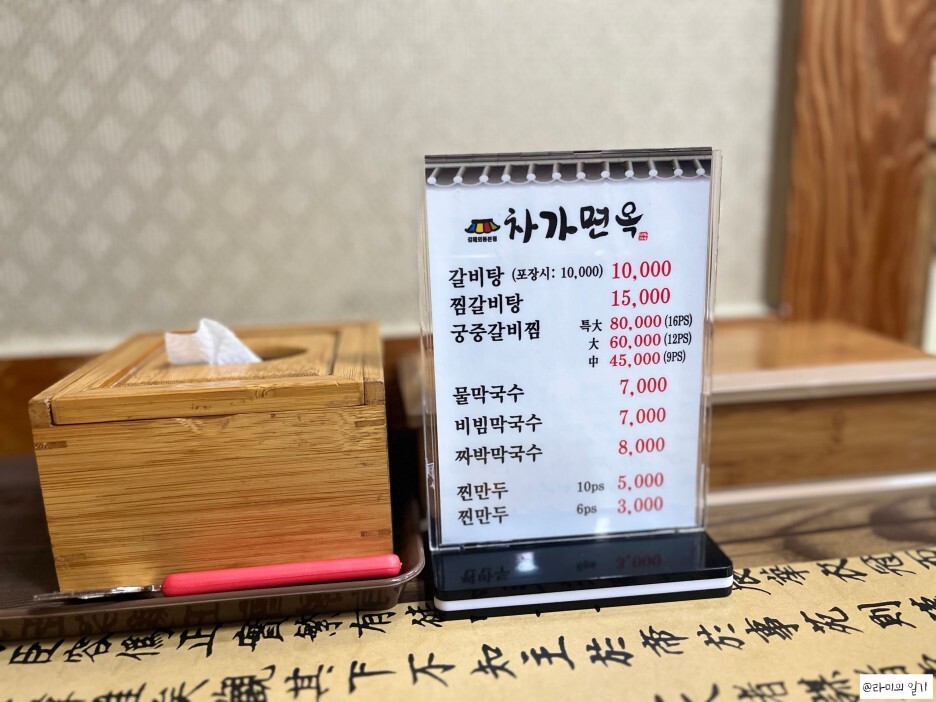 차가면옥
갈비탕 (포장시: 10,000) 10,000
찜갈비탕 15,000
궁중갈비찜 특大 80,000 (16PS)
大 60,000 (12PS)
中 45,000 (9PS)
물막국수 7,000
비빔막국수 7,000
짜박막국수 8,000
찐만두 10ps 5,000
찐만두 6ps 3,000
臣容僬正
其下不知主於帝於事死則
@라미의 일기